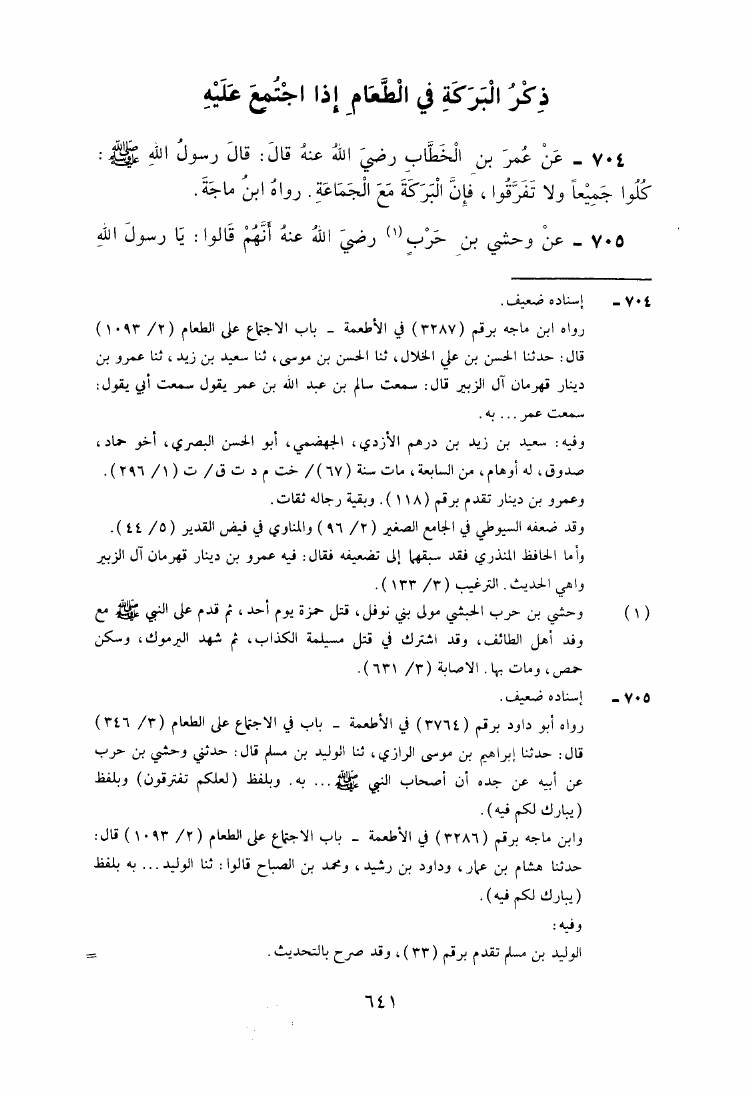 ذِكْرُ الْبَرَكَةِ فِي الْطَّعَامِ إِذَا اجْتُمِعَ عَلَيْهِ
٧٠٤ - عَنْ عُمرَ بنِ الْخَطَّابِ رضيَ اللهُ عنهُ قالَ: قالَ رسولُ اللهِ ﷺ :
كُلُوا جَمِيْعاً ولا تَفَرَّقُوا، فإنَّ الْبَرَكَةَ مَعَ الْجَمَاعَةِ. رواهُ ابنُ ماجَةَ.
٧٠٥ - عنْ وحشي بنِ حَرْبٍ(١) رضيَ اللهُ عنهُ أَنَّهُمْ قَالوا: يَا رسولَ اللهِ
٧٠٤ - إسناده ضعيف.
رواه ابن ماجه برقم (٣٢٨٧) في الأطعمة - باب الاجتماع على الطعام (٢/ ١٠٩٣)
قال: حدثنا الحسن بن علي الخلال، ثنا الحسن بن موسى، ثنا سعيد بن زيد، ثنا عمرو بن
دينار قهرمان آل الزبير قال: سمعت سالم بن عبد الله بن عمر يقول سمعت أبي يقول:
سمعت عمر... به.
وفيه: سعيد بن زيد بن درهم الأزدي، الجهضمي، أبو الحسن البصري، أخو حماد،
صدوق، له أوهام، من السابعة، مات سنة (٦٧)/ خت م د ت ق/ ت (١/ ٢٩٦).
وعمرو بن دينار تقدم برقم (١١٨). وبقية رجاله ثقات.
وقد ضعفه السيوطي في الجامع الصغير (٢/ ٩٦) والمناوي في فيض القدير (٥/ ٤٤).
وأما الحافظ المنذري فقد سبقهما إلى تضعيفه فقال: فيه عمرو بن دينار قهرمان آل الزبير
واهي الحديث. الترغيب (٣/ ١٣٣).
(١) وحشي بن حرب الحبشي مولى بني نوفل، قتل حمزة يوم أحد، ثم قدم على النبي ﷺ مع
وفد أهل الطائف، وقد اشترك في قتل مسيلمة الكذاب، ثم شهد اليرموك، وسكن
حمص، ومات بها. الاصابة (٣/ ٦٣١).
٧٠٥ - إسناده ضعيف.
رواه أبو داود برقم (٣٧٦٤) في الأطعمة - باب في الاجتماع على الطعام (٣/ ٣٤٦)
قال: حدثنا إبراهيم بن موسى الرازي، ثنا الوليد بن مسلم قال: حدثني وحشي بن حرب
عن أبيه عن جده أن أصحاب النبي ﷺ... به. وبلفظ (لعلكم تفترقون) وبلفظ
(يبارك لكم فيه).
وابن ماجه برقم (٣٢٨٦) في الأطعمة - باب الاجتماع على الطعام (٢/ ١٠٩٣) قال:
حدثنا هشام بن عمار، وداود بن رشيد، ومحمد بن الصباح قالوا: ثنا الوليد... به بلفظ
(يبارك لكم فيه).
وفيه:
الوليد بن مسلم تقدم برقم (٣٣)، وقد صرح بالتحديث. =
٦٤١